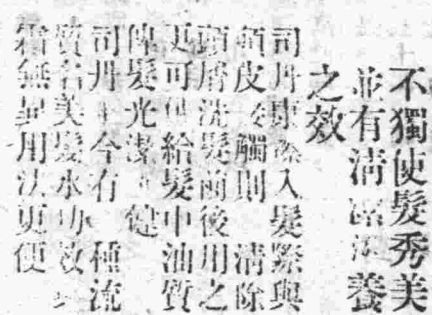 不獨使髮秀美
並有清潔滋養
之效
司丹康深入髮際與
頭皮接觸則清除
頭屑洗髮前後用之
更可供給髮中油質
俾髮光潔
司丹 今有 種流
質名美髮水功效
霜無異用法更便